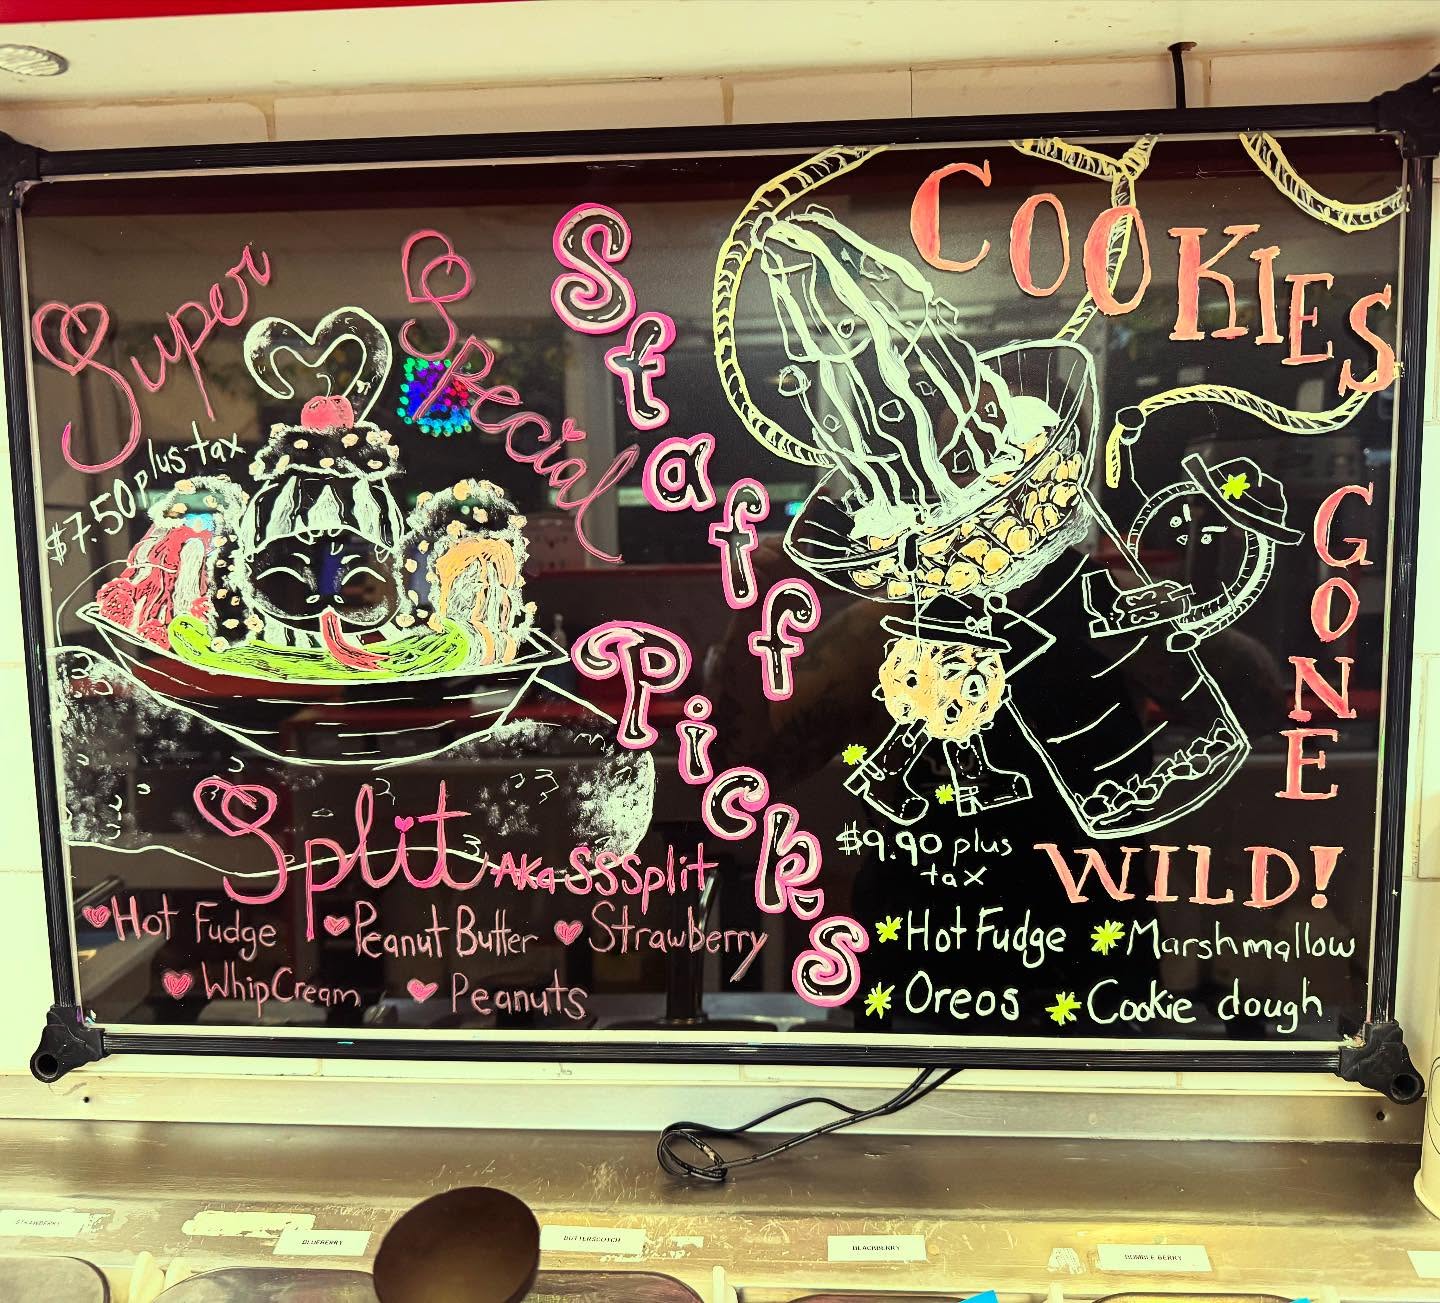 Super Special
$7.50 plus tax
Split
AKa SSSplit
Hot Fudge
Peanut Butter
Strawberry
Whip Cream
Peanuts
Staff
Picks
COOKIES
GONE
WILD!
$9.90 plus
tax
Hot Fudge
Marshmallow
Oreos
Cookie dough
STRAWBERRY
BLUEBERRY
BUTTERSCOTCH
BLACKBERRY
BUMBLE BERRY